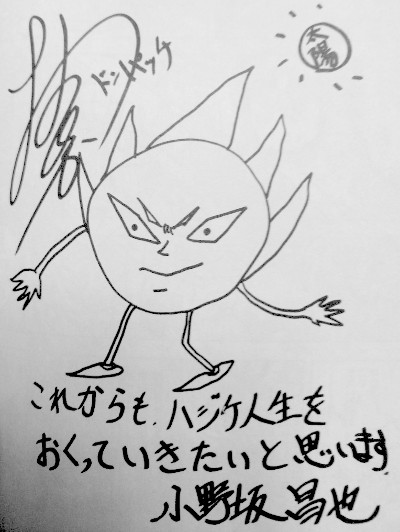 太陽
ドンパッチ
これからも、ハジケ人生を
おくっていきたいと思います
小野坂昌也